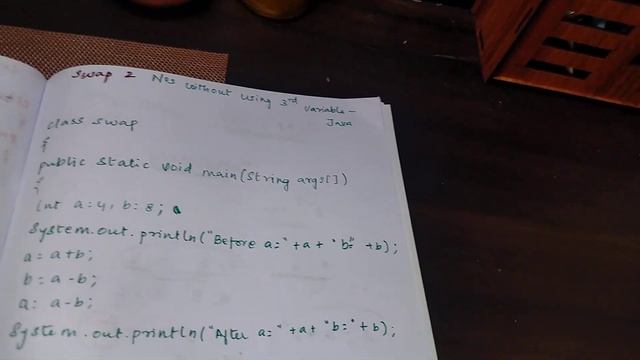 Swap 2 Nos without using 3rd variable -
Java
class swap
{
public static void main(String args[])
{
int a=4, b=8;
System.out.println("Before a=" +a + "b=" +b);
a = a+b;
b = a-b;
a = a-b;
System.out.println("After a=" +a+ "b=" +b);